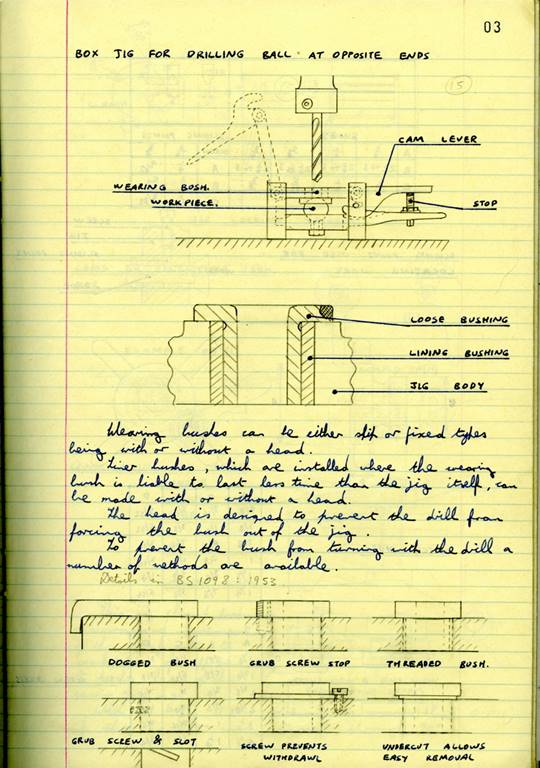 03
BOX JIG FOR DRILLING BALL AT OPPOSITE ENDS
15
CAM LEVER
WEARING BUSH.
WORKPIECE.
STOP
LOOSE BUSHING
LINING BUSHING
JIG BODY
Wearing bushes can be either slip or fixed types
being with or without a head.
Liner bushes, which are installed where the wearing
bush is liable to last less time than the jig itself, can
be made with or without a head.
The head is designed to prevent the drill from
forcing the bush out of the jig.
To prevent the bush from turning with the drill a
number of methods are available.
Details in BS 1098 : 1953
DOGGED BUSH
GRUB SCREW STOP
THREADED BUSH.
GRUB SCREW & SLOT
SCREW PREVENTS
WITHDRAWL
UNDERCUT ALLOWS
EASY REMOVAL